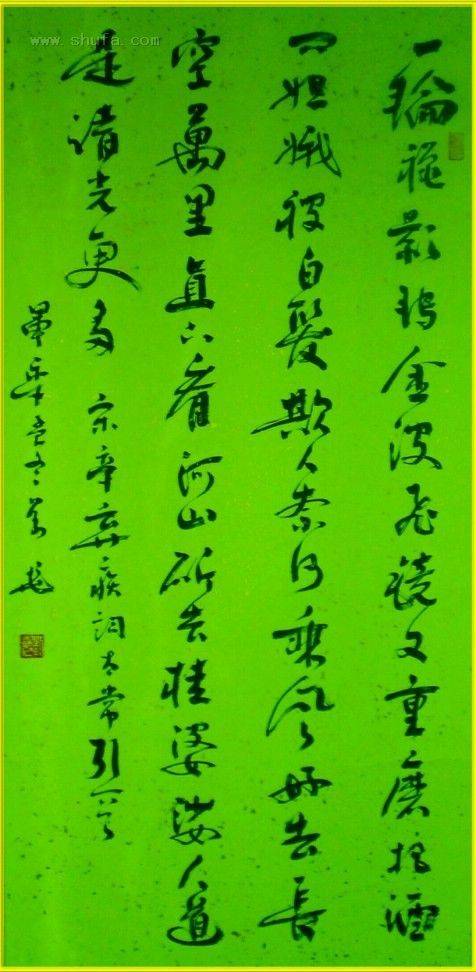 www.shufa.com
一輪秋影轉金波飛鏡又重磨把酒
问姮娥被白髮欺人奈何乘風好去長
空萬里直下看河山斫去桂婆娑人道
是清光更多 宋辛棄疾詞太常引一首